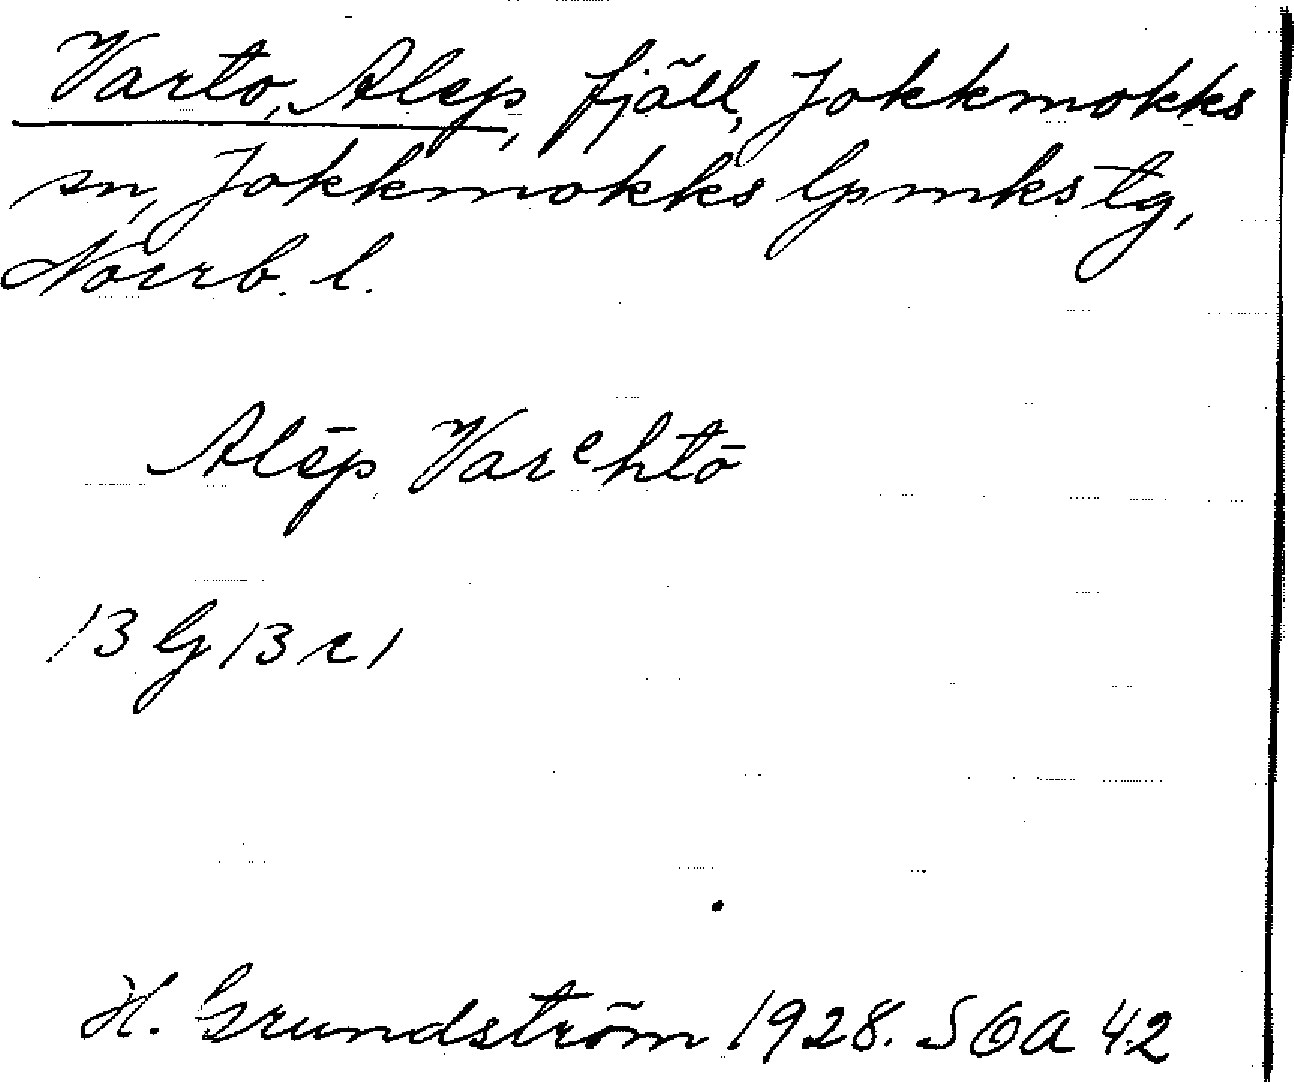 Varto, Alep, fjäll, Jokkmokks
sn, Jokkmokks lpmkstg,
Norrb. l.
Alēp Varᵉhtō
13 G 13 c 1
H. Grundström 1928. SOA 42